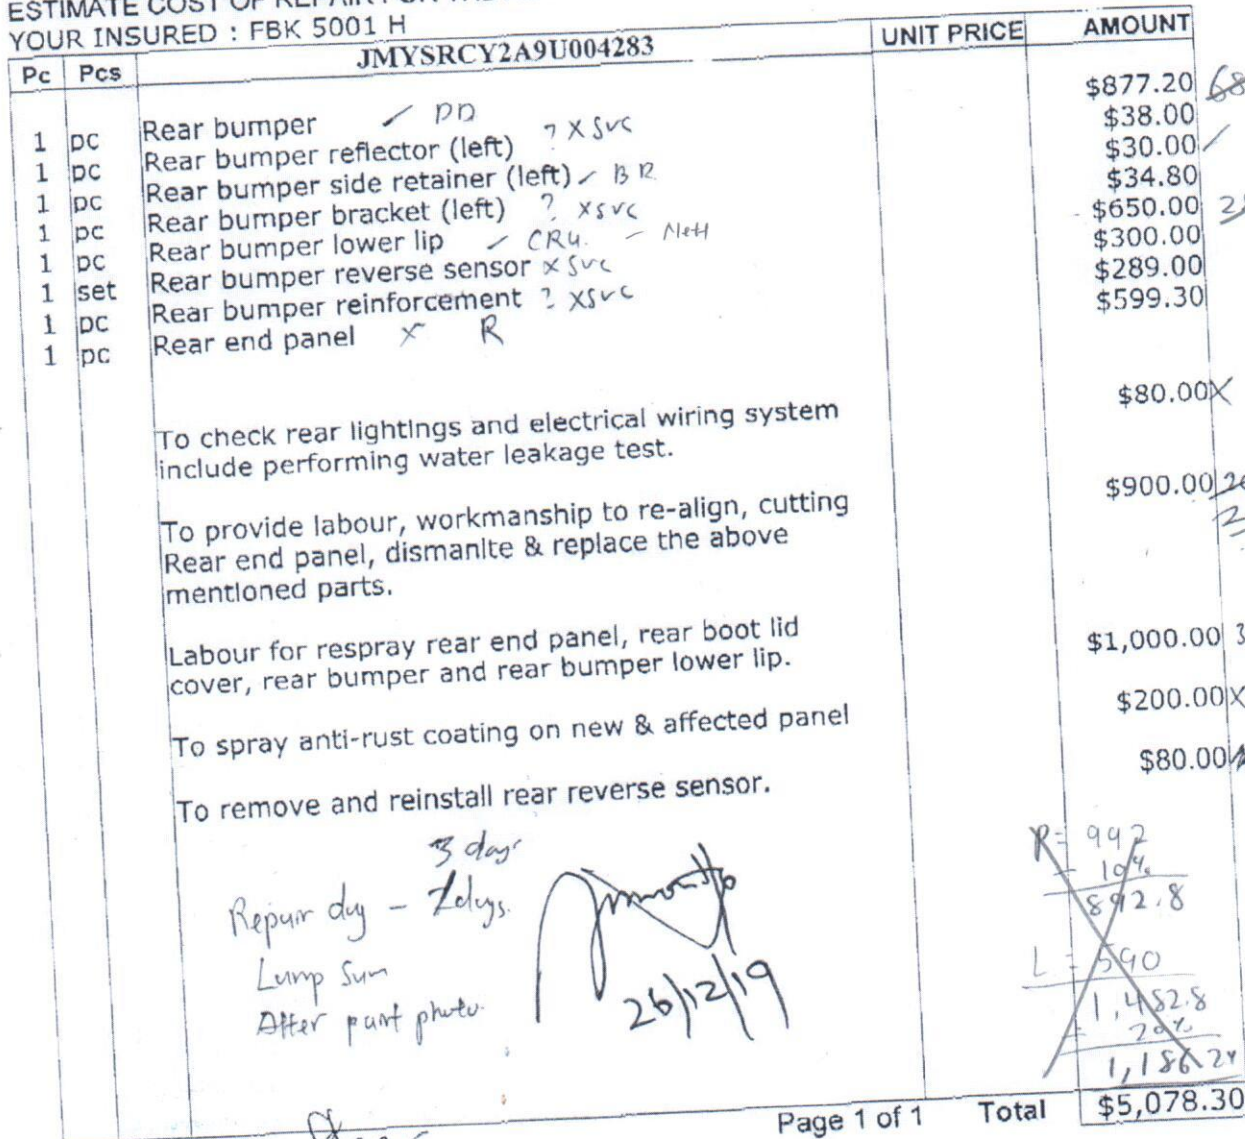 ESTIMATE COST OF REPAIR FOR
YOUR INSURED : FBK 5001 H
Pc Pcs JMYSRCY2A9U004283 UNIT PRICE AMOUNT
1 pc Rear bumper ✓ DD $877.20
1 pc Rear bumper reflector (left) ? X SVC $38.00
1 pc Rear bumper side retainer (left) ✓ BR $30.00 ✓
1 pc Rear bumper bracket (left) ? XSVC $34.80
1 pc Rear bumper lower lip ✓ CRU. - Nett $650.00
1 set Rear bumper reverse sensor X SVC $300.00
1 pc Rear bumper reinforcement ? XSVC $289.00
1 pc Rear end panel X R $599.30
To check rear lightings and electrical wiring system $80.00 X
include performing water leakage test.
To provide labour, workmanship to re-align, cutting $900.00
Rear end panel, dismanlte & replace the above
mentioned parts.
Labour for respray rear end panel, rear boot lid $1,000.00
cover, rear bumper and rear bumper lower lip.
To spray anti-rust coating on new & affected panel $200.00 X
To remove and reinstall rear reverse sensor. $80.00
3 days
Repair day - 2 days.
Lump Sum
After paint photo.
26/12/19
R = 992
- 10%
892.8
L = 590
1,482.8
- 20%
1,186.24
Page 1 of 1 Total $5,078.30